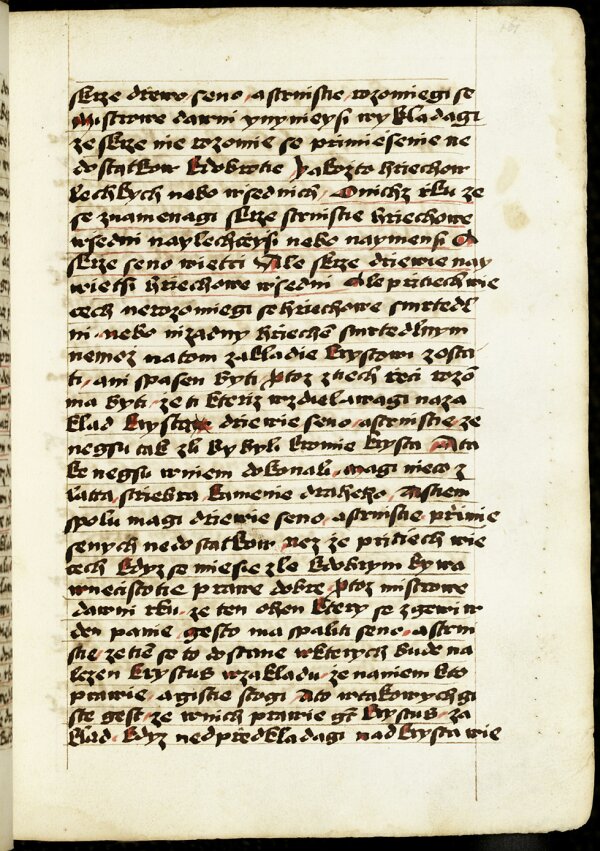 skrze dřewo seno a strnistie rozomiegi se
Mistrowe dawni ynynieysi wykladagi
ze skrze nie rozomie se primiesenie ne
dostatkow kdobrotie yakozto hriechow
lechkych nebo wsednich Onichz rku ze
se znamenagi skrze strnistie hriechowe
wsedni naylechczeysi nebo naymensi A
skrze seno wietci Ale skrze drziewie nay
wietsi hriechowe wsedni Ale pri tiech wie
cech nerozomiegi se hriechowe smrtedl
ni nebo nizadny hriechem smrtedlnym
nemoz natom zakladie krystowu zosta
ti ani spasen byti protoz ztiech reci rozo
ma byti ze ti kteriz wzdielawagi naza
klad krystow drziewie seno a strnistie ze
negsu tak zli by byli kromie krysta A ta
ke negsu wniem dokonali magi nieco z
zlatta striebra kamenie draheho A stiem
spolu magi drziewie seno a strnistie primie
senych nedostatkow nez ze pri tiech wie
cech kdyz se miesie zle kdobrym bywa
wnecistotie prawe dobre protoz mistrowe
dawni rku ze ten ohen ktery se zgewi w
den panie gesto ma spaliti seno a strni
stie zetie se to dostane wkterych bude na
lezen krystus wzakladu ze naniem kto
prawie a gistie stogi A to wtakowych gi
ste gest ze wnich prawie gt krystus za
klad kdyz nedpredkladagi nad krysta wie